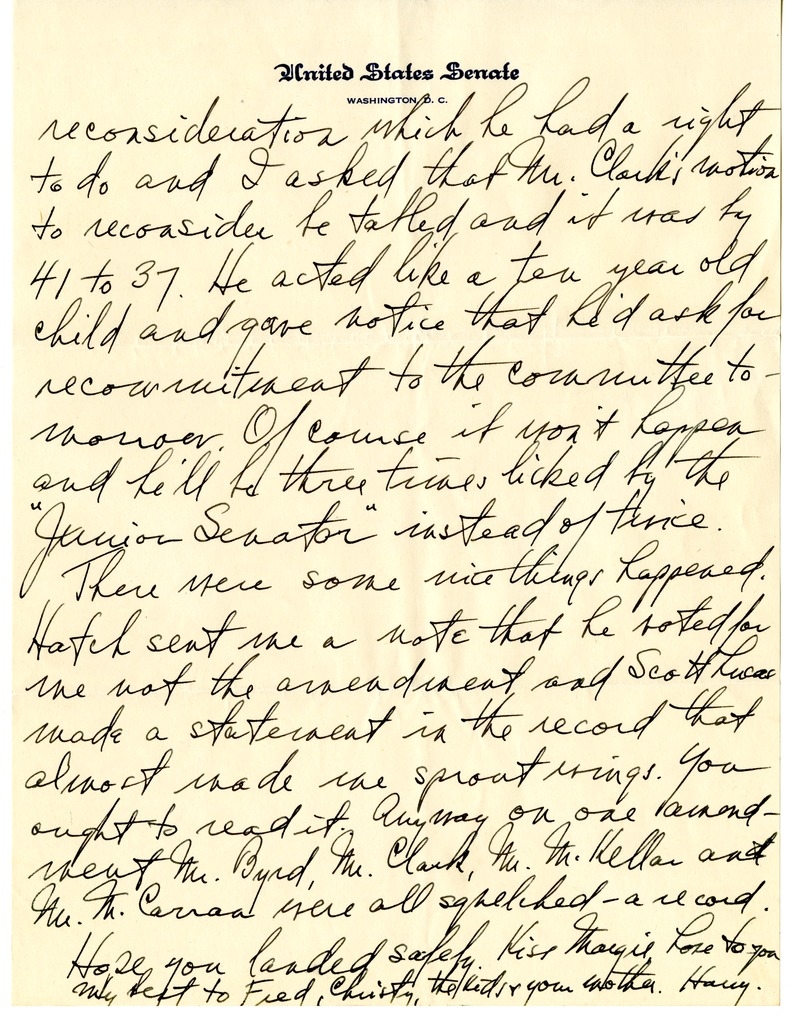 United States Senate
WASHINGTON, D. C.
reconsideration which he had a right
to do and I asked that Mr. Clark's motion
to reconsider be tabled and it was by
41 to 37. He acted like a ten year old
child and gave notice that he'd ask for
recommitment to the committee to-
morrow. Of course it won't happen
and he'll be three times licked by the
"Junior Senator" instead of twice.
There were some nice things happened.
Hatch sent me a note that he voted for
me not the amendment and Scott Lucas
made a statement in the record that
almost made me sprout wings. You
ought to read it. Anyway on one amend-
ment Mr. Byrd, Mr. Clark, Mr. McKellar and
Mr. McCarran were all squelched - a record.
Hope you landed safely. Kiss Margie love to you
my best to Fred, Christy, the kids & your mother. Harry.